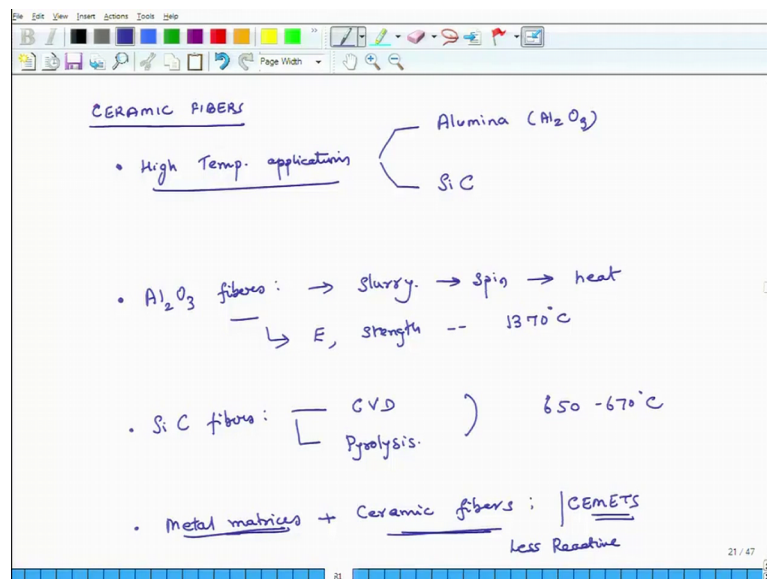 File Edit View Insert Actions Tools Help
B I
Page Width
CERAMIC FIBERS
• High Temp. applications
Alumina (Al2O3)
SiC
• Al2O3 fibers: → Slurry. → Spin → heat
↳ E, strength -- 1370°C
• SiC fibers: CVD
Pyrolysis.
650 - 670°C
• Metal matrices + Ceramic fibers: CEMETS
Less Reactive
21 / 47
21